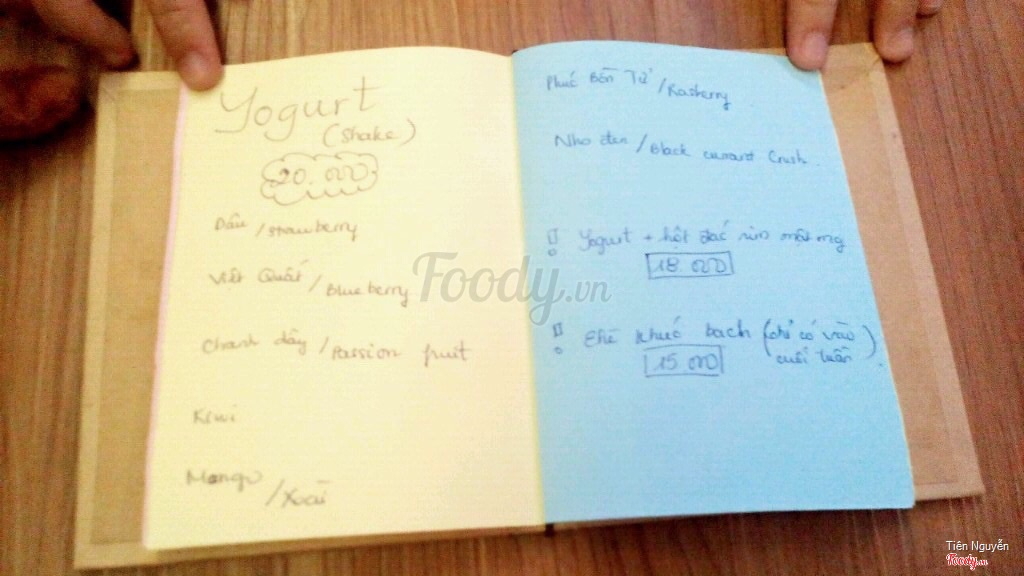 Yogurt
(Shake)
20.000
Dâu / strawberry
Việt Quất / Blueberry
Chanh dây / Passion fruit
Kiwi
Mango / Xoài
Phúc Bồn Tử / Rasberry
Nho đen / Black currant Crush.
!! Yogurt + hột đác rim mật ong
18.000
!! Chè khúc bạch (chỉ có vào
cuối tuần)
15.000
Foody.vn
Tiên Nguyễn
Foody.vn